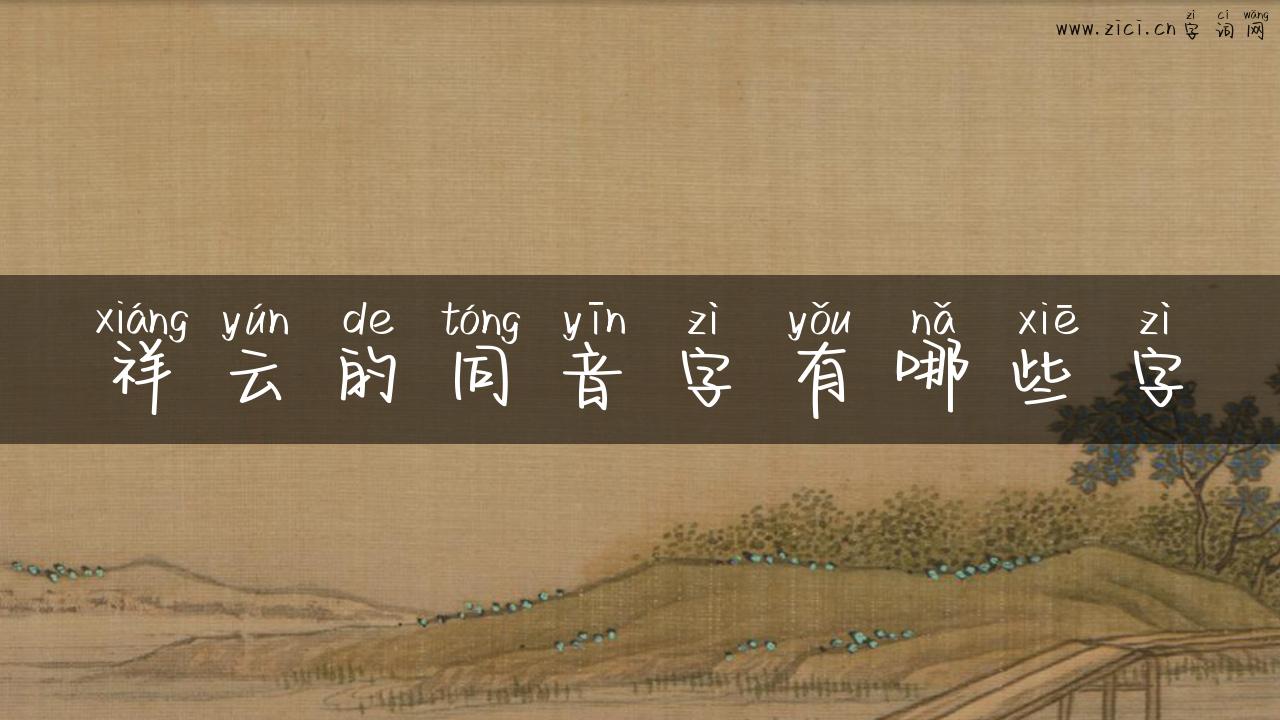 zì cí wǎng
www.zici.cn字词网
xiáng yún de tóng yīn zì yǒu nǎ xiē zì
祥云的同音字有哪些字